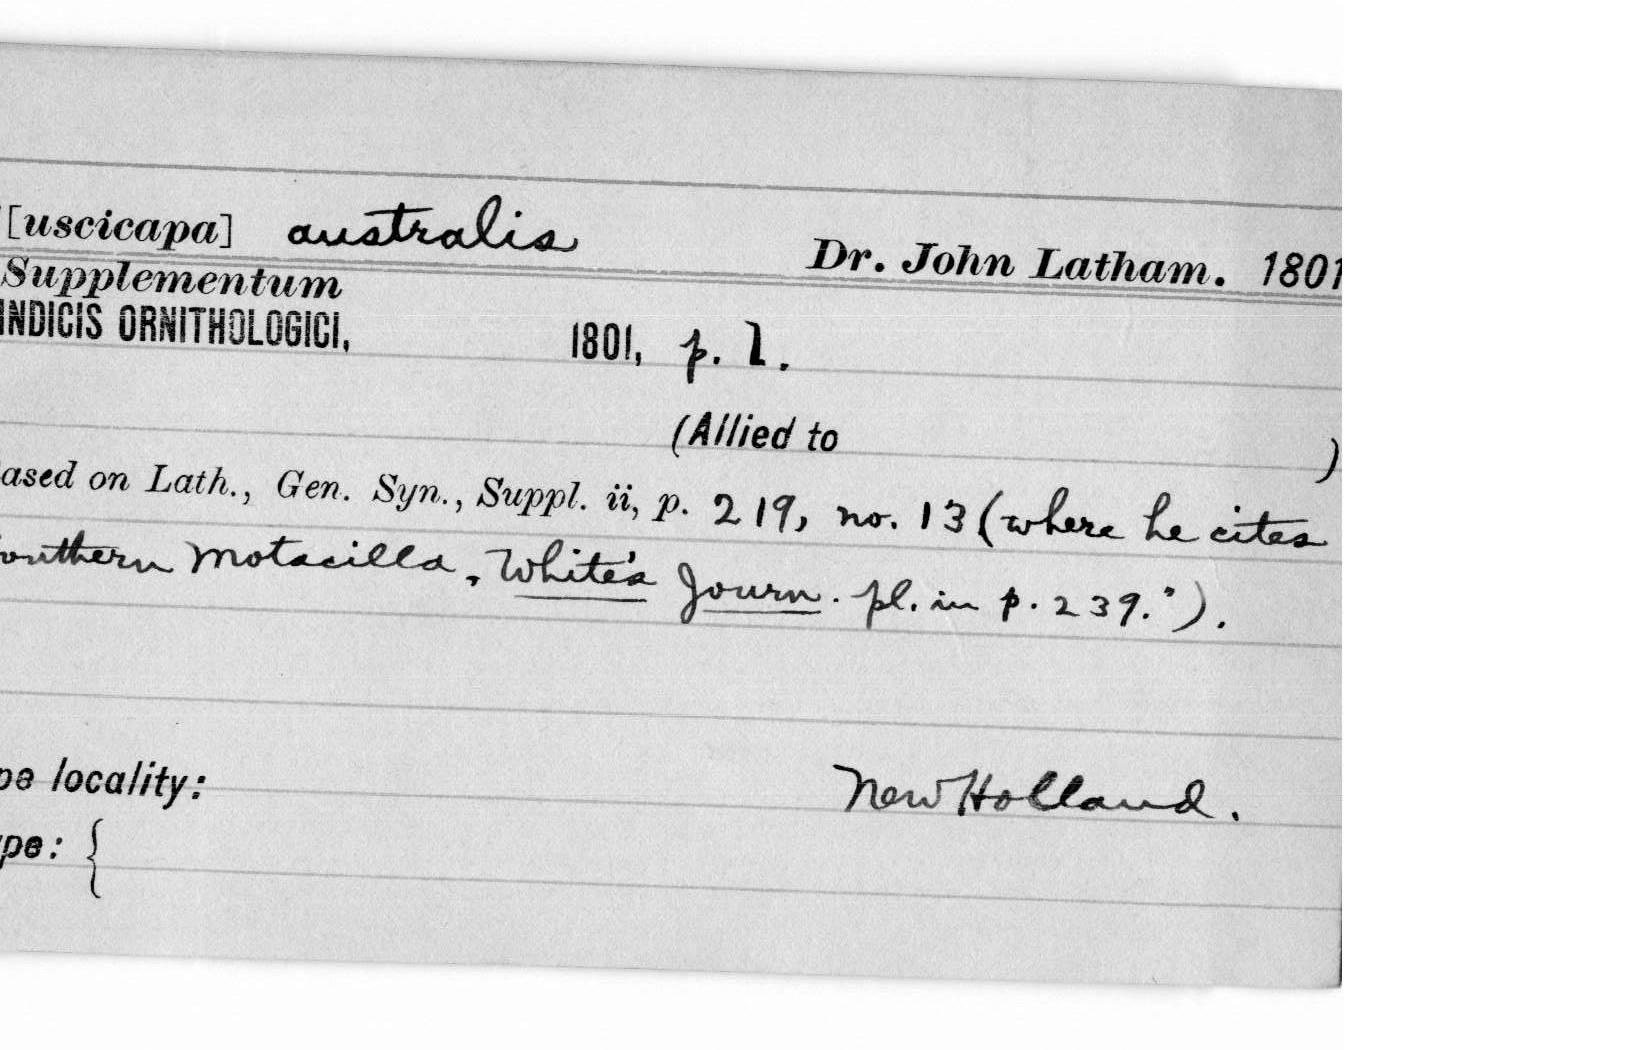 [uscicapa] australis Dr. John Latham. 1801
Supplementum
INDICIS ORNITHOLOGICI, 1801, p. l.
(Allied to )
ased on Lath., Gen. Syn., Suppl. ii, p. 219, no. 13 (where he cites
outhern Motacilla, White's Journ. pl. in p. 239.").
pe locality: New Holland.
ype: {